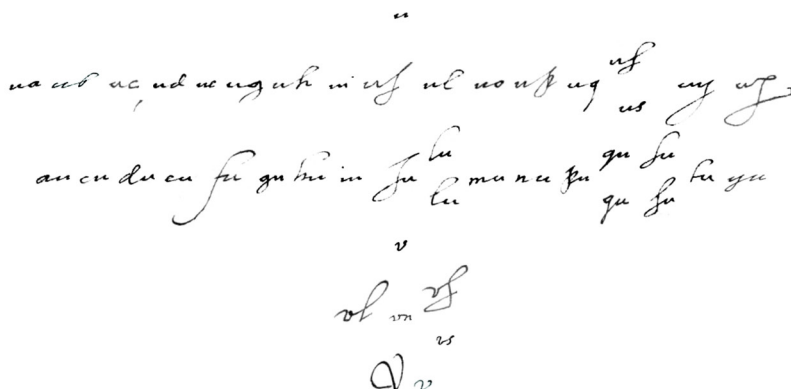 u
ua ub uc ud ue ug uh ui uſ ul uo up uq uſ us uy
au cu du eu fu gu hu iu ſu lu lu mu nu pu qu qu ſu ſu tu yu
v
vl vn vſ vs
V v